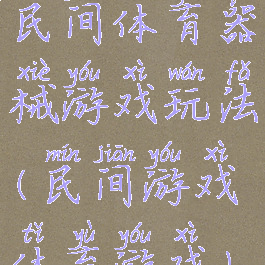 民间体育器
xiè yóu xì wán fǎ
械游戏玩法
mín jiān yóu xì
(民间游戏
tǐ yù yóu xì
体育游戏)